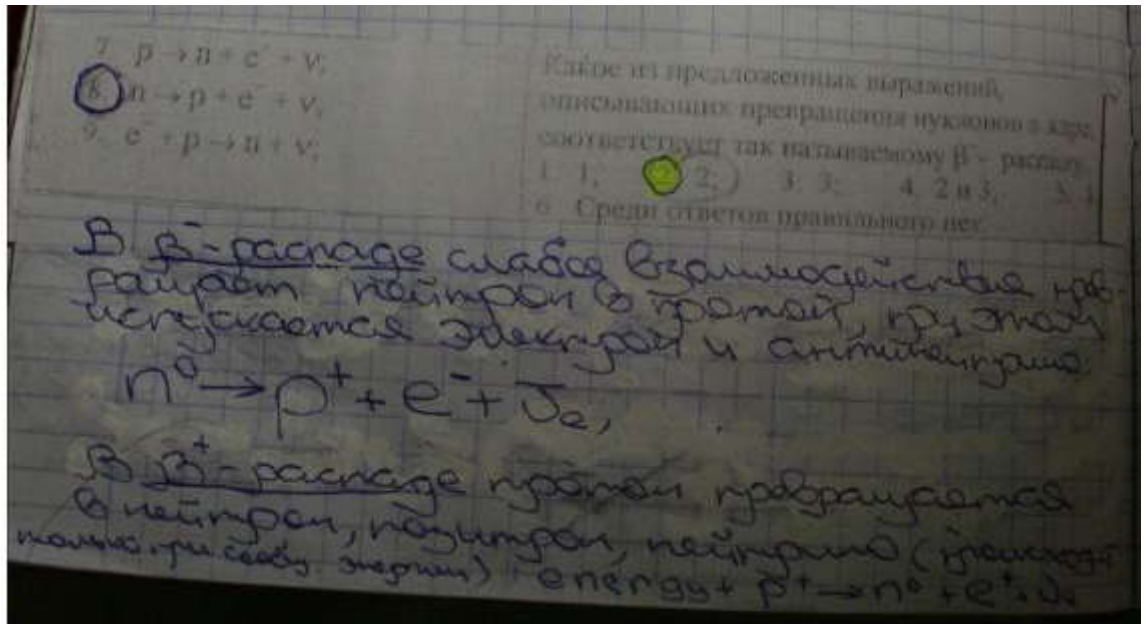 7. p → n + e⁻ + ν;
8. n → p + e⁻ + ν;
9. e⁻ + p → n + ν;
Какое из предложенных выражений,
описывающих превращения нуклонов в ядре,
соответствует так называемому β⁻- распаду.
1. 1; 2. 2; 3. 3; 4. 2 и 3,
6. Среди ответов правильного нет.
В β⁻-распаде слабое взаимодействие прев-
ращает нейтрон в протон, при этом
испускается электрон и антинейтрино.
n⁰ → p⁺ + e⁻ + ν̄e,
В β⁺-распаде протон превращается
в нейтрон, позитрон, нейтрино (происходит
только при энергии) energy + p⁺ → n⁰ + e⁺ + νe